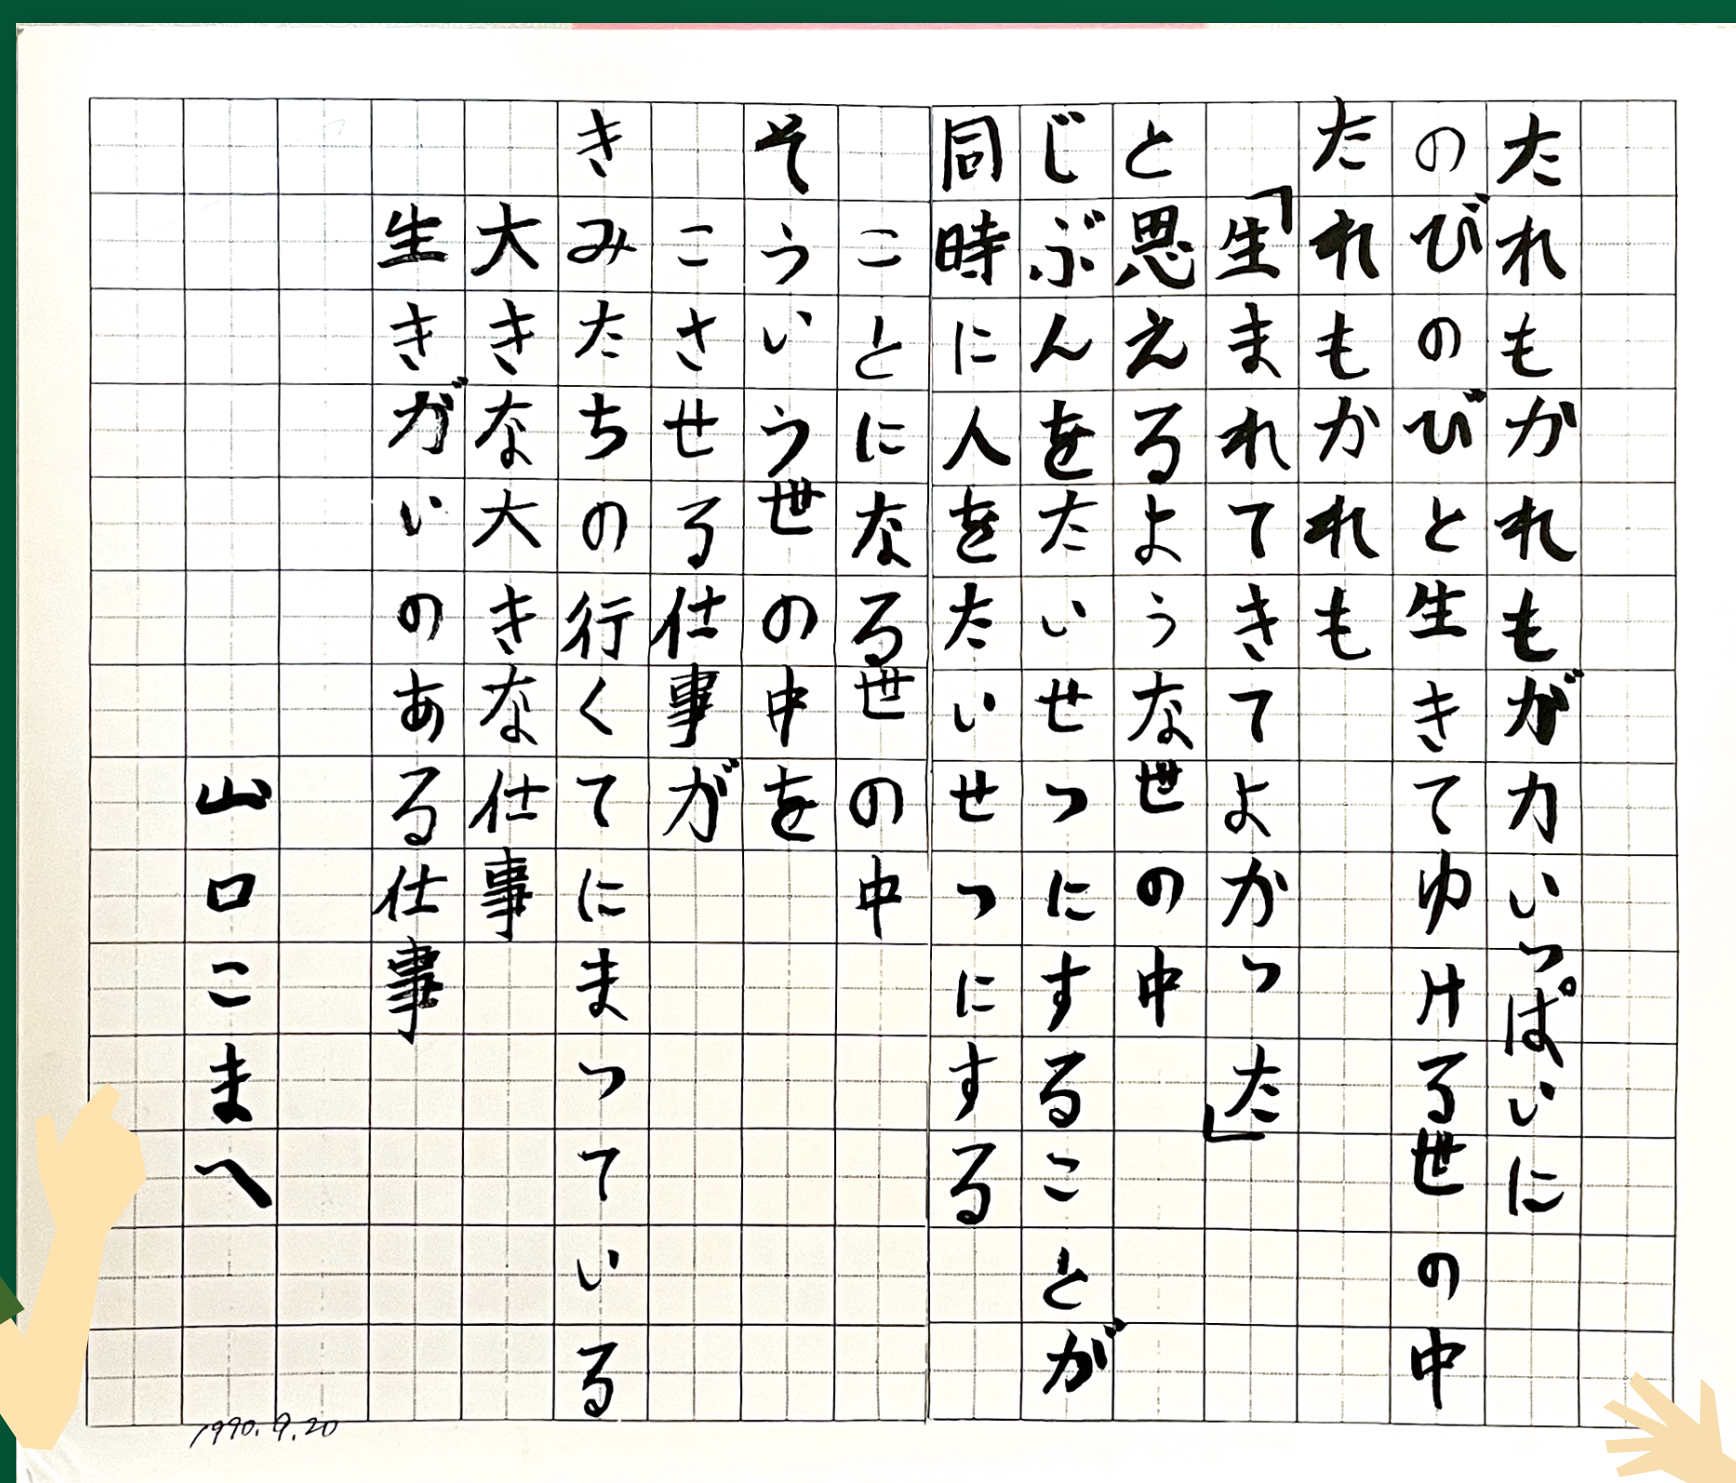 たれもかれもが力いっぱいに
のびのびと生きてゆける世の中
たれもかれも
「生まれてきてよかった」
と思えるような世の中
じぶんをたいせつにすることが
同時に人をたいせつにする
ことになる世の中
そういう世の中を
こさせる仕事が
きみたちの行くてにまっている
大きな大きな仕事
生きがいのある仕事
山口こまへ
1990.9.20